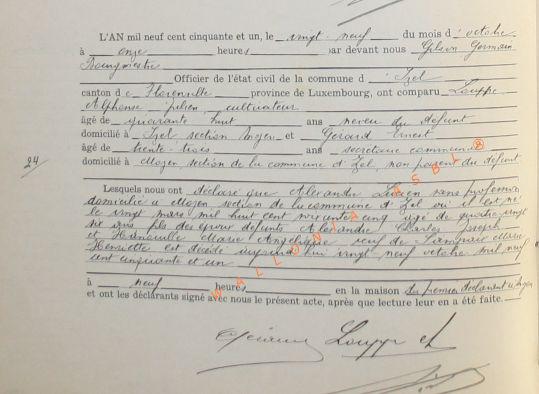 L'AN mil neuf cent cinquante et un, le vingt-neuf du mois d' octobre
à onze heures par devant nous Gilson Germain
Bourgmestre
Officier de l'état civil de la commune d' Izel
canton de Florenville province de Luxembourg, ont comparu Louppe
Alphonse Julien, cultivateur
âgé de quarante huit ans neveu du défunt
domicilié à Izel section Moyen et Gérard Ernest
âgé de trente-trois ans secrétaire communal
24
domicilié à Moyen, section de la commune d'Izel, non parent du défunt
Lesquels nous ont déclaré que Alexandre Lucien sans profession
domicilié à Moyen section de la commune d'Izel où il est né
le vingt mars mil huit cent soixante cinq âgé de quatre-vingt
six ans fils des époux défunts Alexandre Charles Joseph
et Marie Angélique veuf de Marie
Henriette est décédé aujourd'hui vingt neuf octobre mil neuf
cent cinquante et un
à neuf heures en la maison du premier déclarant à Moyen
et ont les déclarants signé avec nous le présent acte, après que lecture leur en a été faite.
Louppe
WALLONIA ASBL